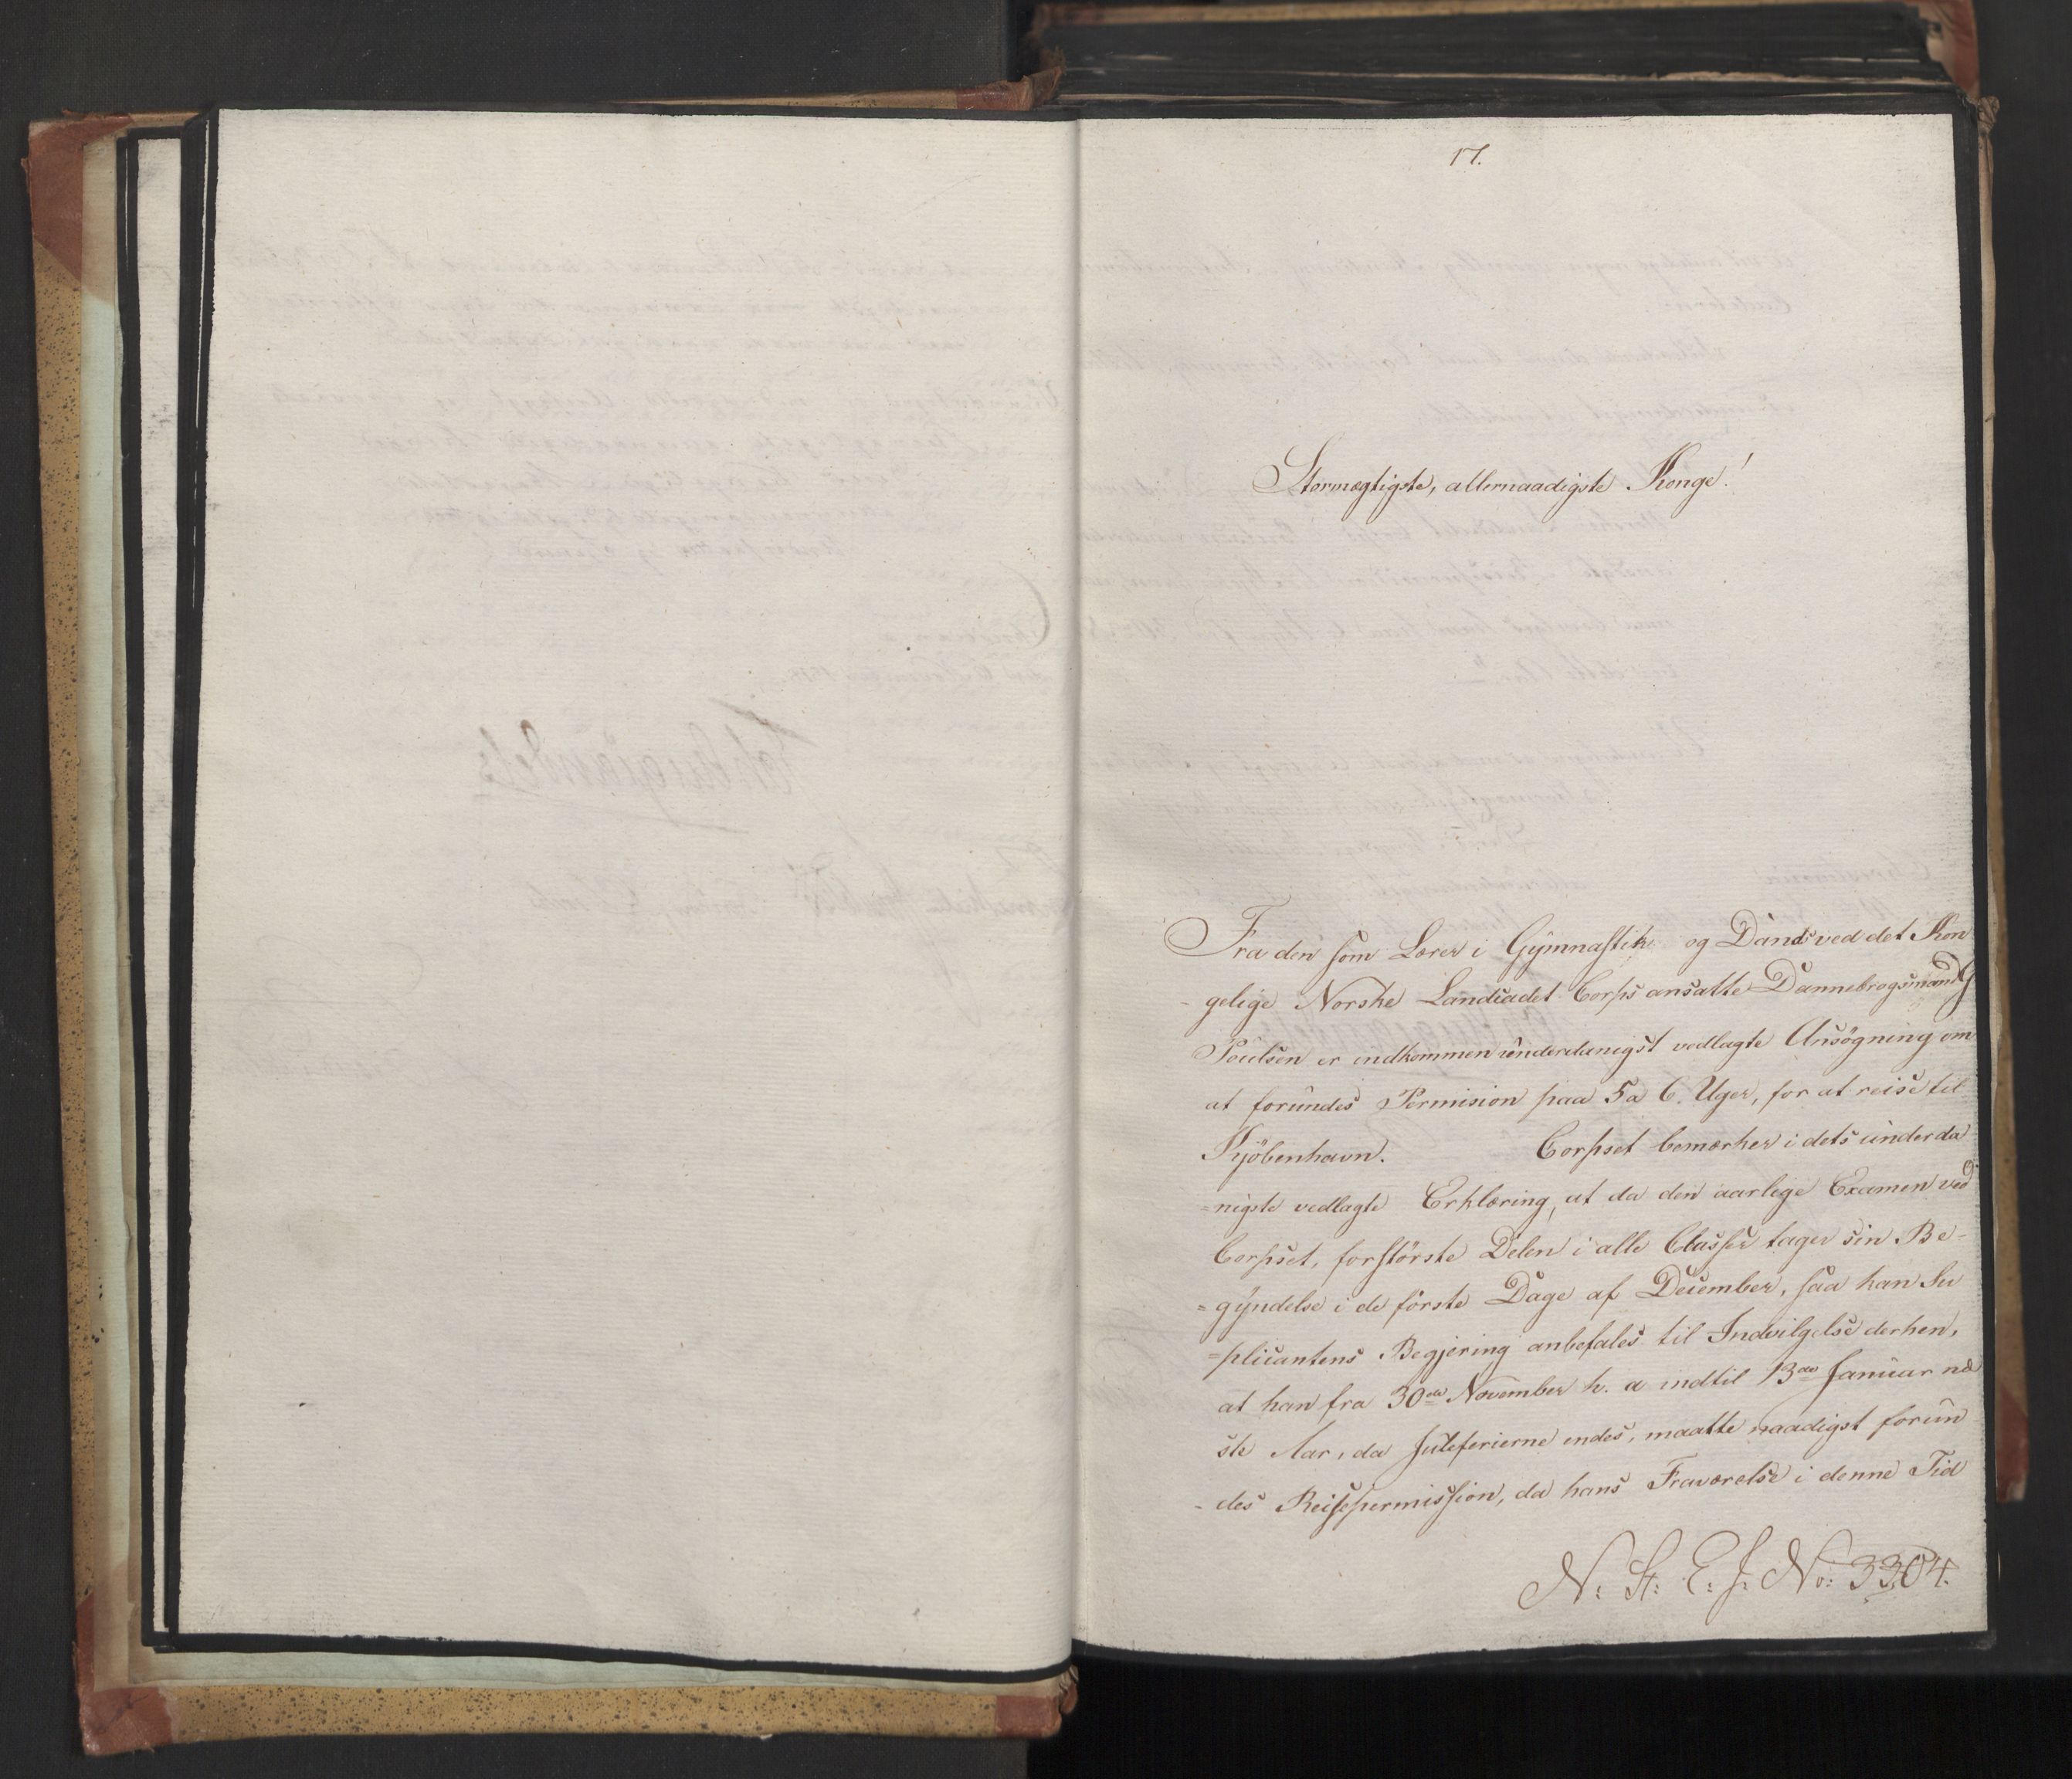 17.
Stormægtigste, allernaadigste Konge!
Fra den som Lærer i Gÿmnastik og Dands ved det Kon
gelige Norske Landcadet Corps ansatte Dannebrogsmand G
Poulsen er indkommen underdanigst vedlagte Ansögning om
at forundes Permision paa 5 a 6. Uger, for at reise til
Kjöbenhavn. Corpset bemærker i dets underda
=nigste vedlagte Erklæring, at da den aarlige Examen ved
Corpset, forstörste Delen i alle Classer tager sin Be=
=gÿndelse i de förste Dage af December, saa kan Su
=plicantens Begjering anbefales til Indvilgelse derhen,
at han fra 30de November h. a indtil 13de Januar næ
ste Aar, da Juleferierne endes, maatte naadigst forun
-des Reisepermission, da hans Fraværelse i denne Tid
N: St: E: J: No: 3304.